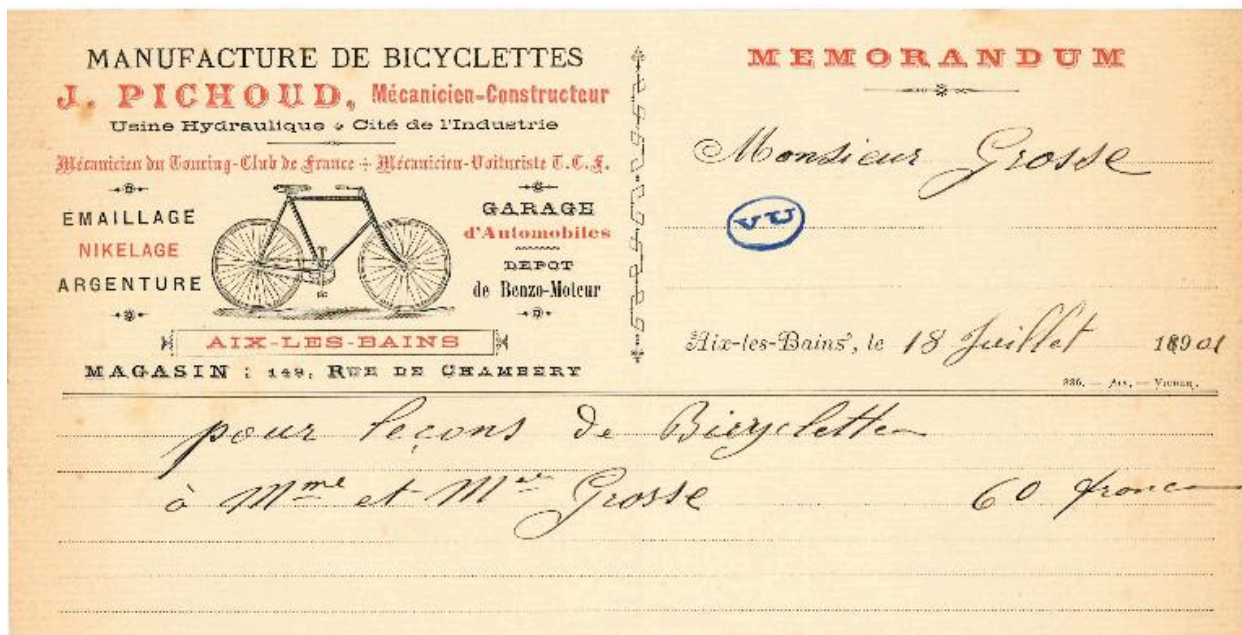 MANUFACTURE DE BICYCLETTES
J. PICHOUD, Mécanicien-Constructeur
Usine Hydraulique Cité de l'Industrie
Mécanicien du Touring-Club de France Mécanicien-Voituriste T.C.F.
ÉMAILLAGE
NIKELAGE
ARGENTURE
GARAGE
d'Automobiles
DÉPOT
de Benzo-Moteur
AIX-LES-BAINS
MAGASIN : 149, RUE DE CHAMBERY
MEMORANDUM
Monsieur Grosse
VU
Aix-les-Bains, le 18 Juillet 1901
pour leçons de Bicyclette
à Mme et Mr Grosse 60 francs